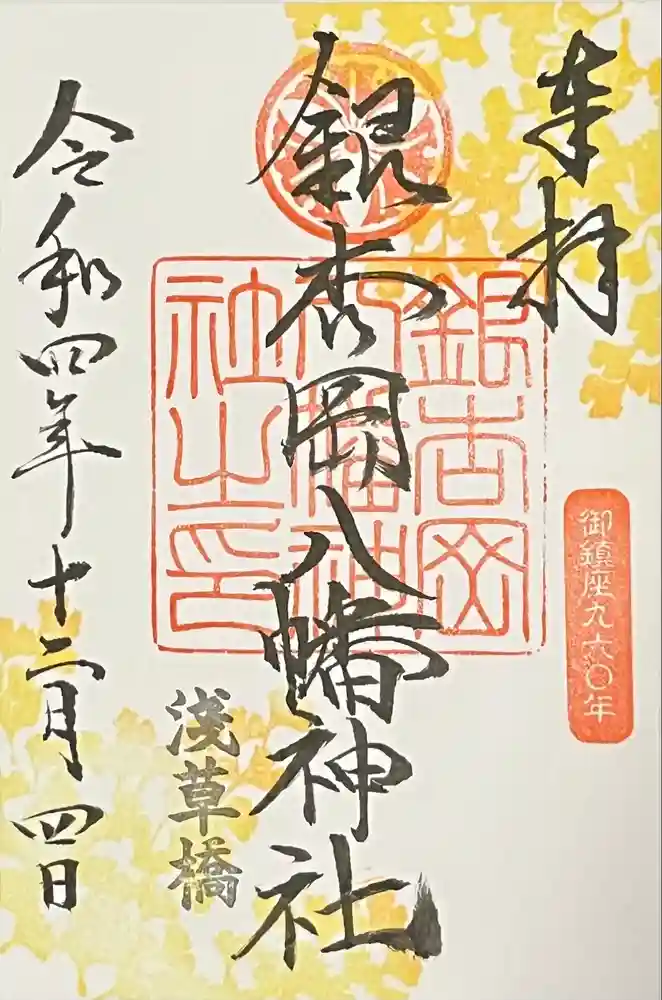 奉拝
御鎮座九六〇年
銀杏岡八幡神社
銀杏岡
八幡神
社之印
浅草橋
令和四年十二月四日